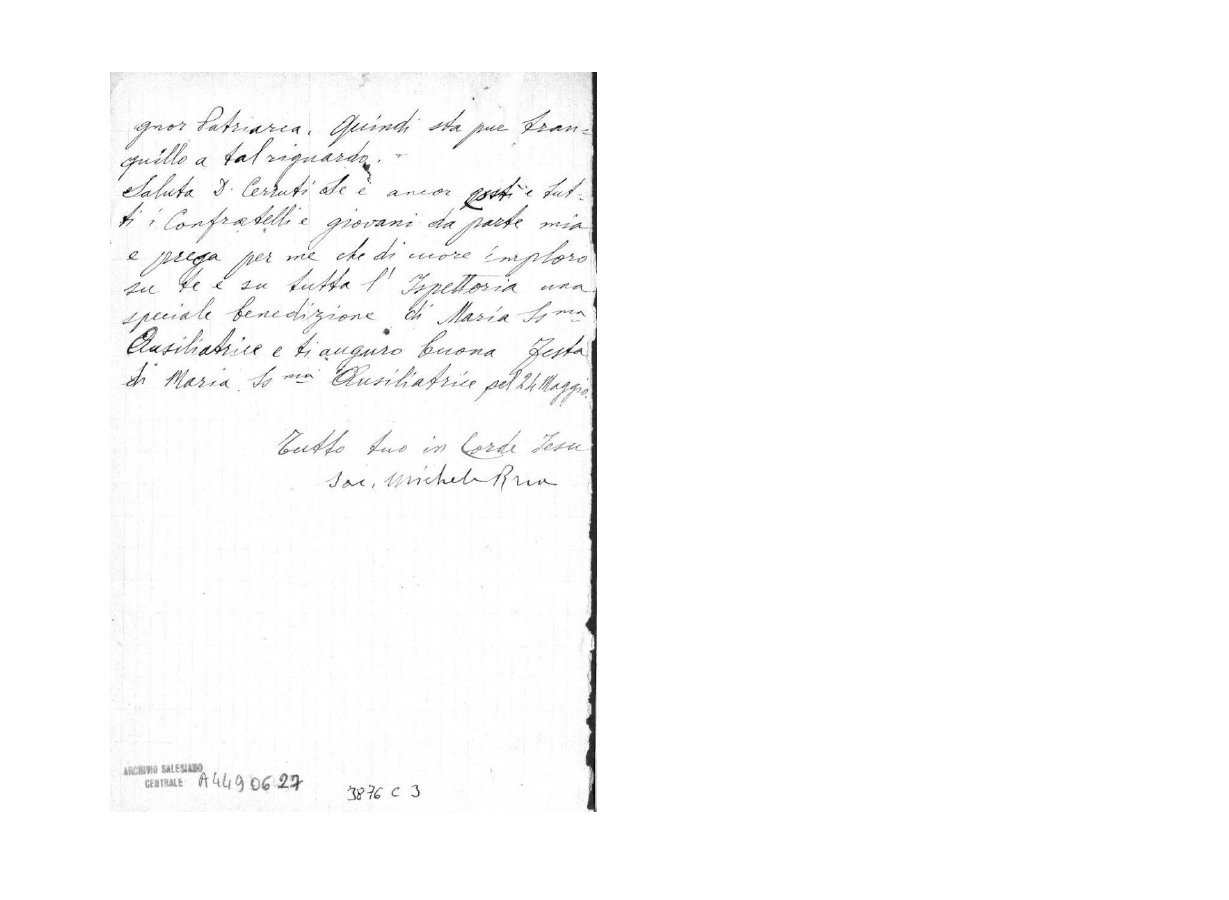 gnor Patriarca. Quindi sta pue tran=
quillo a tal riguardo. -
Saluta D. Cerruti Se è ancor costì e tut-
ti i Confratelli e giovani da parte mia
e prega per me che di cuore imploro
su te e su tutta l' Ispettoria una
speciale benedizione di Maria Ss ma
Ausiliatrice e ti auguro buona festa
di Maria Ss ma Ausiliatrice pel 24 Maggio.
Tutto tuo in Corde Jesu
Sac. Michele Rua
ARCHIVIO SALESIANO
CENTRALE A4490627
3876 C 3